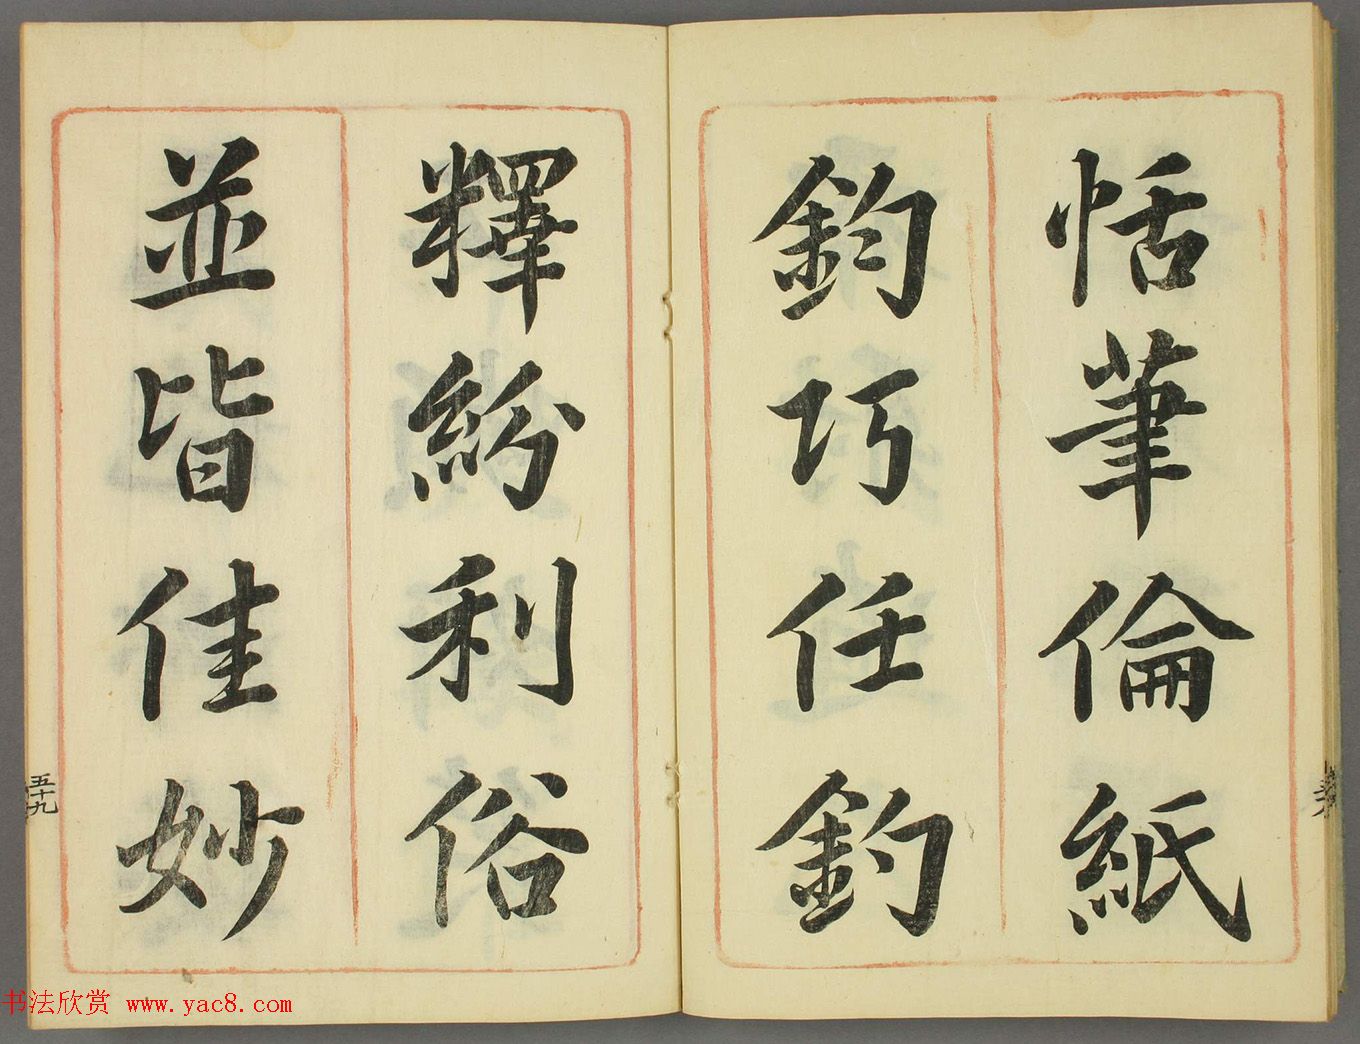 恬筆倫紙
鈞巧任釣
釋紛利俗
並皆佳妙
五十九
书法欣赏 www.yac8.com